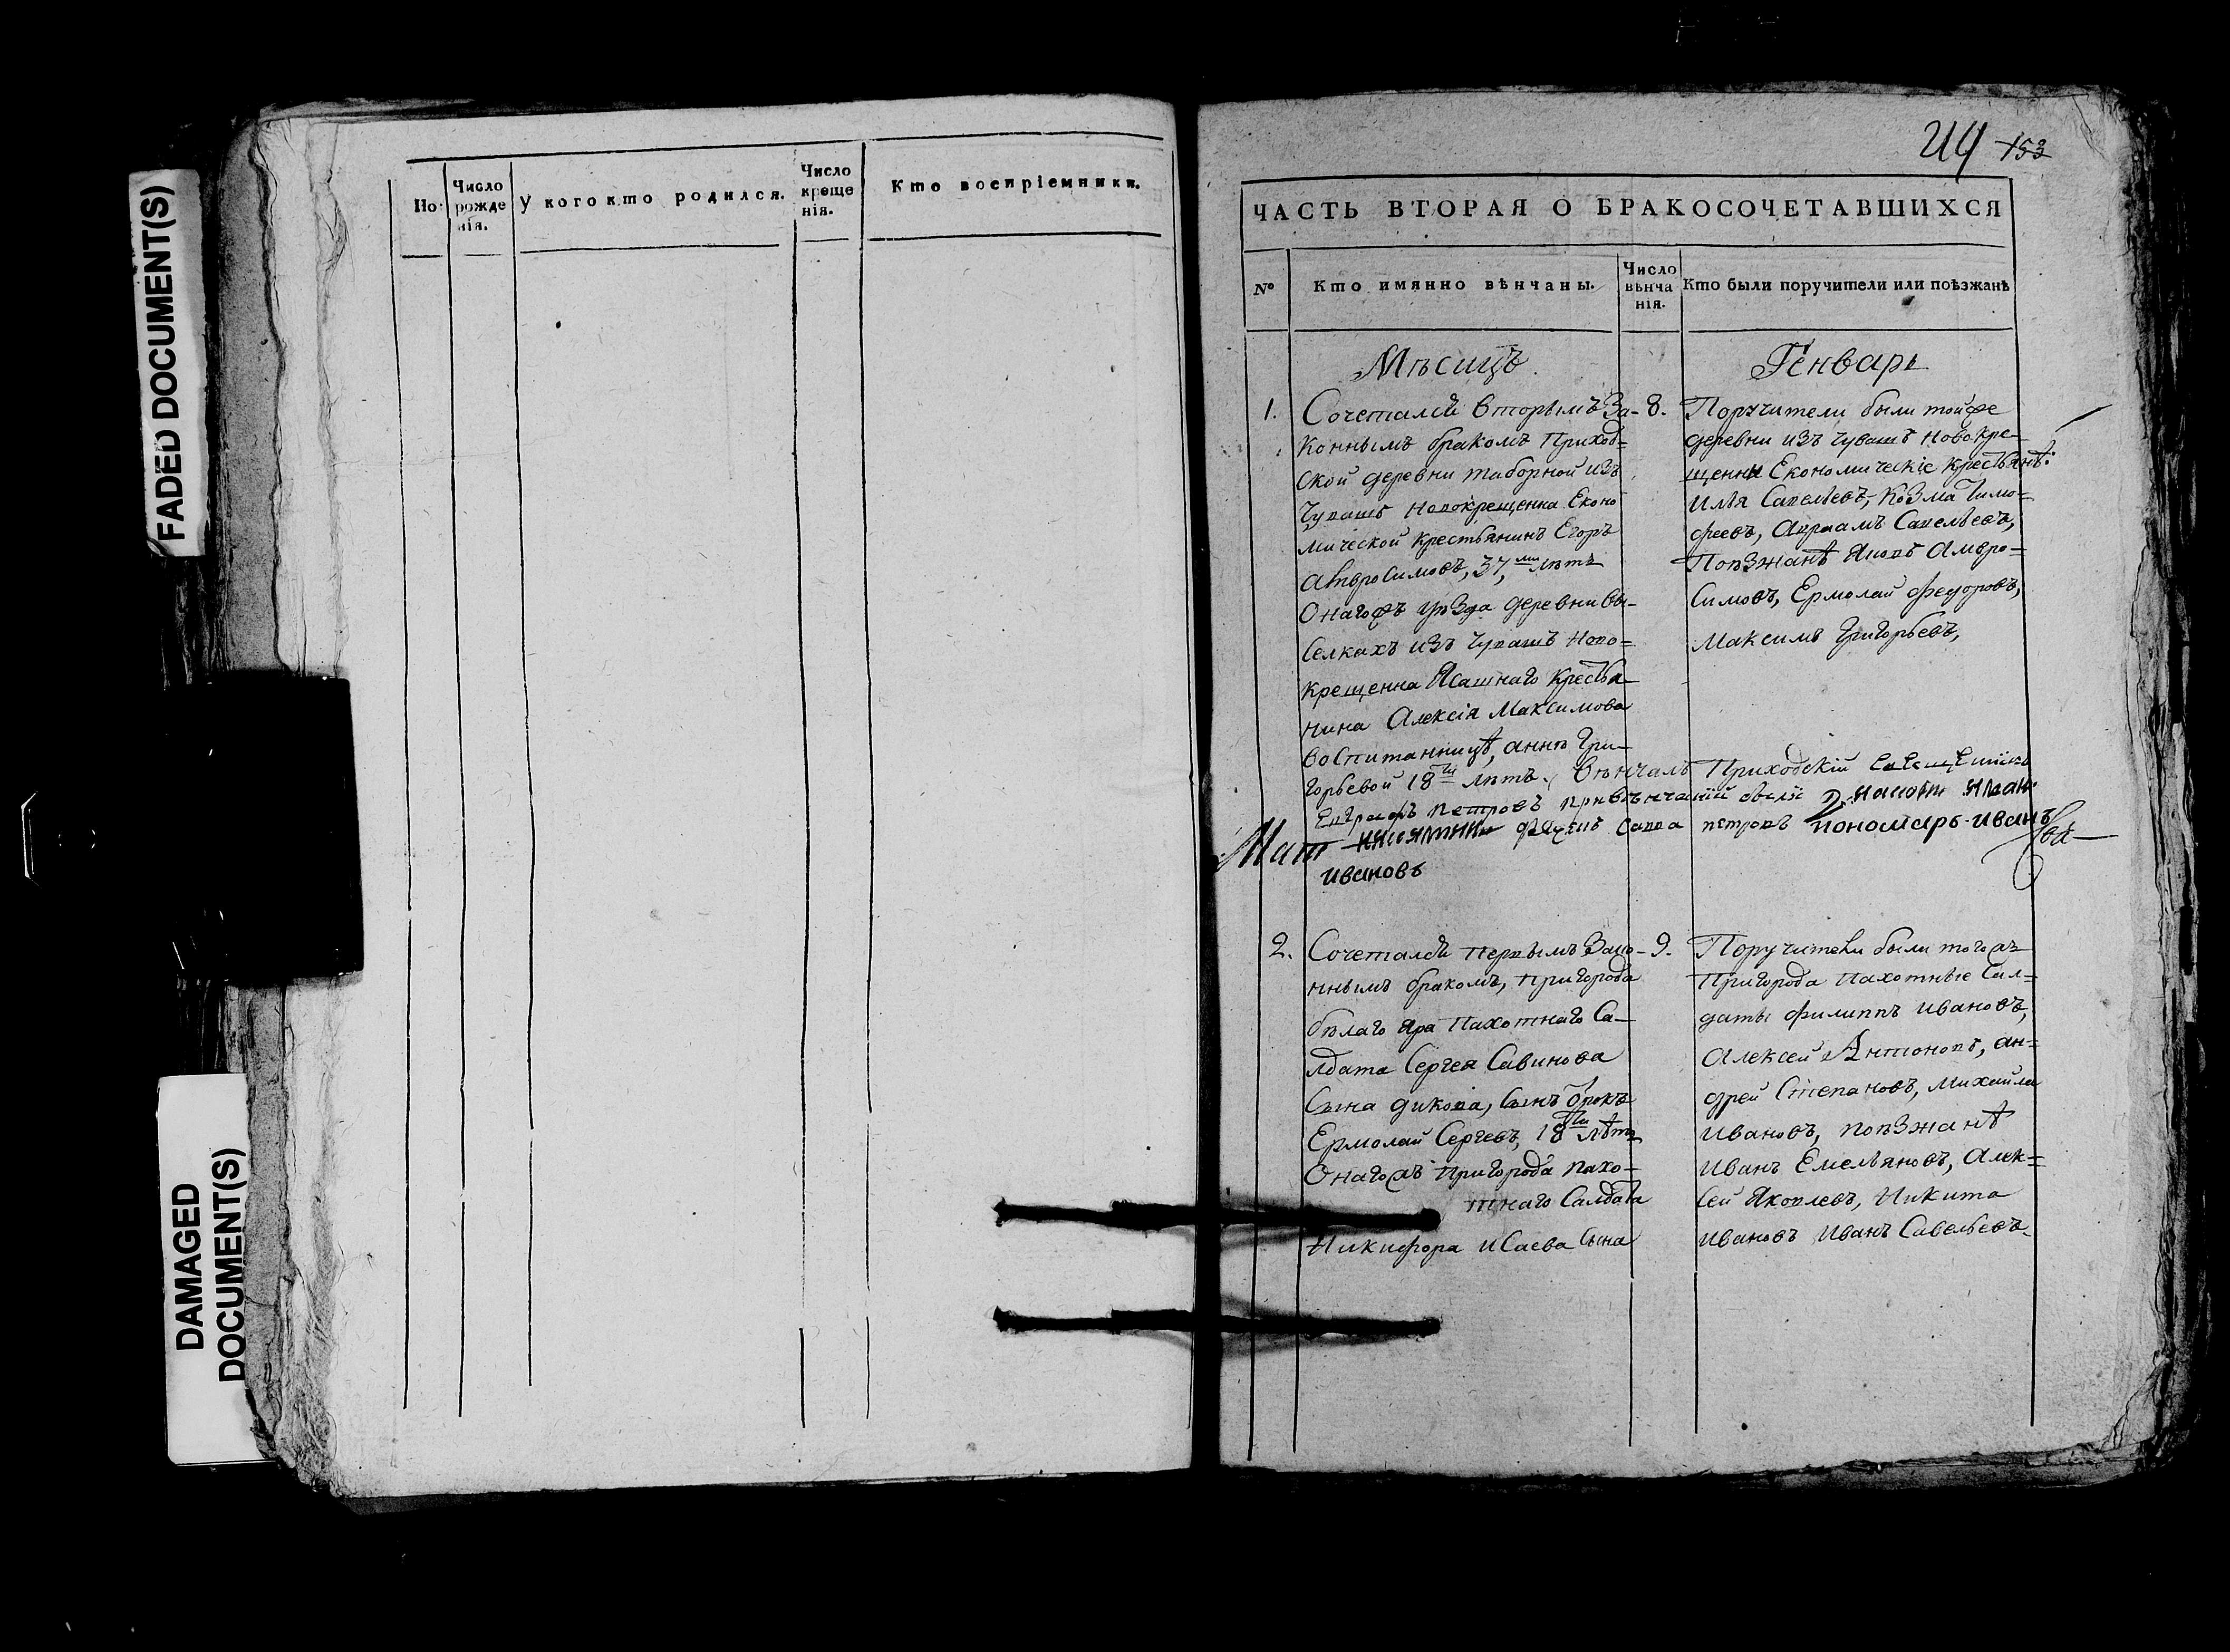 FADED DOCUMENT(S)
DAMAGED
DOCUMENT(S)
Но.
Число
рожде
нія.
У кого кто родился.
Число
креще
нія.
Кто воспріемники.
153
ЧАСТЬ ВТОРАЯ О БРАКОСОЧЕТАВШИХСЯ
№
Кто имянно вѣнчаны.
Число
вѣнча
нія.
Кто были поручители или поѣзжанѣ
Мѣсяцъ
Генварь
1.
Сочетался вторымъ За-
коннымъ бракомъ Приход=
ской деревни таборной изъ
Чувашъ Новокрещенна Еконо
мической крестьянинъ Егоръ
Амвросимовъ, 37, ми лѣтъ
Онагожъ уѣзда деревни Вы-
селкахъ изъ Чувашъ Ново=
крещенна Ясашнаго кресть­я-
нина Алексія Максимова
воспитанницѣ, аннѣ Гри-
горьевой 18 ти лѣтъ.
8.
Поручители были тойже
деревни изъ чувашъ новокре-
щенны Економическіе крестьянѣ:
Илья Савельевъ, Козма Тимо=
феевъ, Авраамъ Савельевъ,
Поѣзжанѣ Яковъ Амвро=
симовъ, Ермолай Федоровъ,
Максимъ Григорьевъ,
Вѣнчалъ Приходскій Священникъ
Евграфъ Петровъ при вѣнчаніи были
Савва петровъ пономарь иванъ
ивановъ
2.
Сочетался первымъ Зако-
ннымъ бракомъ, пригорода
бѣлаго Яра Пахотнаго Са-
лдата Сергея Савинова
Сына дикова, Сынъ
Ермолай Сергеевъ, 18 ти лѣтъ
Онагожъ Пригорода пахо-
тнаго Салдата
Никифора Исаева Сына
9.
Поручители были тогожъ
Пригорода Пахотные Сал=
даты филиппъ ивановъ,
Алексей Антоновъ, ан=
дрей Степановъ, Михайла
Ивановъ, поѣзжанѣ
Иванъ Емельяновъ, Алек=
сей Яковлевъ, Никита
ивановъ Иванъ Савельевъ.